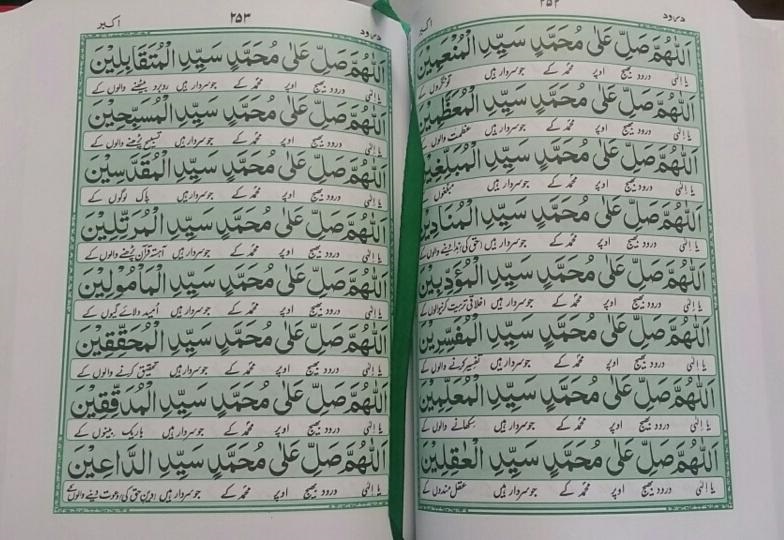 درود ۲۵۲ اکبر
اَللّٰهُمَّ صَلِّ عَلٰى مُحَمَّدٍ سَيِّدِ الْمُنْعِمِيْنَ
یا الٰہی درود بھیج اوپر محمدؐ کے جو سردار ہیں
اَللّٰهُمَّ صَلِّ عَلٰى مُحَمَّدٍ سَيِّدِ الْمُعَظَّمِيْنَ
یا الٰہی درود بھیج اوپر محمدؐ کے جو سردار ہیں عظمت والوں کے
اَللّٰهُمَّ صَلِّ عَلٰى مُحَمَّدٍ سَيِّدِ الْمُبَلِّغِيْنَ
یا الٰہی درود بھیج اوپر محمدؐ کے جو سردار ہیں مبلغوں کے
اَللّٰهُمَّ صَلِّ عَلٰى مُحَمَّدٍ سَيِّدِ الْمُنَادِيْنَ
یا الٰہی درود بھیج اوپر محمدؐ کے جو سردار ہیں (حق کی) ندا دینے والوں کے
اَللّٰهُمَّ صَلِّ عَلٰى مُحَمَّدٍ سَيِّدِ الْمُؤَدِّبِيْنَ
یا الٰہی درود بھیج اوپر محمدؐ کے جو سردار ہیں اخلاقی تربیت کرنیوالوں کے
اَللّٰهُمَّ صَلِّ عَلٰى مُحَمَّدٍ سَيِّدِ الْمُفَسِّرِيْنَ
یا الٰہی درود بھیج اوپر محمدؐ کے جو سردار ہیں تفسیر کرنے والوں کے
اَللّٰهُمَّ صَلِّ عَلٰى مُحَمَّدٍ سَيِّدِ الْمُعَلِّمِيْنَ
یا الٰہی درود بھیج اوپر محمدؐ کے جو سردار ہیں سکھانے والوں کے
اَللّٰهُمَّ صَلِّ عَلٰى مُحَمَّدٍ سَيِّدِ الْعٰقِلِيْنَ
یا الٰہی درود بھیج اوپر محمدؐ کے جو سردار ہیں عقل مندوں کے
درود ۲۵۳ اکبر
اَللّٰهُمَّ صَلِّ عَلٰى مُحَمَّدٍ سَيِّدِ الْمُتَقَابِلِيْنَ
یا الٰہی درود بھیج اوپر محمدؐ کے جو سردار ہیں روبرو بیٹھنے والوں کے
اَللّٰهُمَّ صَلِّ عَلٰى مُحَمَّدٍ سَيِّدِ الْمُسَبِّحِيْنَ
یا الٰہی درود بھیج اوپر محمدؐ کے جو سردار ہیں تسبیح پڑھنے والوں کے
اَللّٰهُمَّ صَلِّ عَلٰى مُحَمَّدٍ سَيِّدِ الْمُقَدَّسِيْنَ
یا الٰہی درود بھیج اوپر محمدؐ کے جو سردار ہیں پاک لوگوں کے
اَللّٰهُمَّ صَلِّ عَلٰى مُحَمَّدٍ سَيِّدِ الْمُرَتِّلِيْنَ
یا الٰہی درود بھیج اوپر محمدؐ کے جو سردار ہیں آہستہ قرآن پڑھنے والوں کے
اَللّٰهُمَّ صَلِّ عَلٰى مُحَمَّدٍ سَيِّدِ الْمَأْمُوْلِيْنَ
یا الٰہی درود بھیج اوپر محمدؐ کے جو سردار ہیں اُمید دلائے گیوں کے
اَللّٰهُمَّ صَلِّ عَلٰى مُحَمَّدٍ سَيِّدِ الْمُحَقِّقِيْنَ
یا الٰہی درود بھیج اوپر محمدؐ کے جو سردار ہیں تحقیق کرنے والوں کے
اَللّٰهُمَّ صَلِّ عَلٰى مُحَمَّدٍ سَيِّدِ الْمُدَقِّقِيْنَ
یا الٰہی درود بھیج اوپر محمدؐ کے جو سردار ہیں باریک بینوں کے
اَللّٰهُمَّ صَلِّ عَلٰى مُحَمَّدٍ سَيِّدِ الدَّاعِيْنَ
یا الٰہی درود بھیج اوپر محمدؐ کے جو سردار ہیں (دین حق کی) دعوت دینے والوں کے